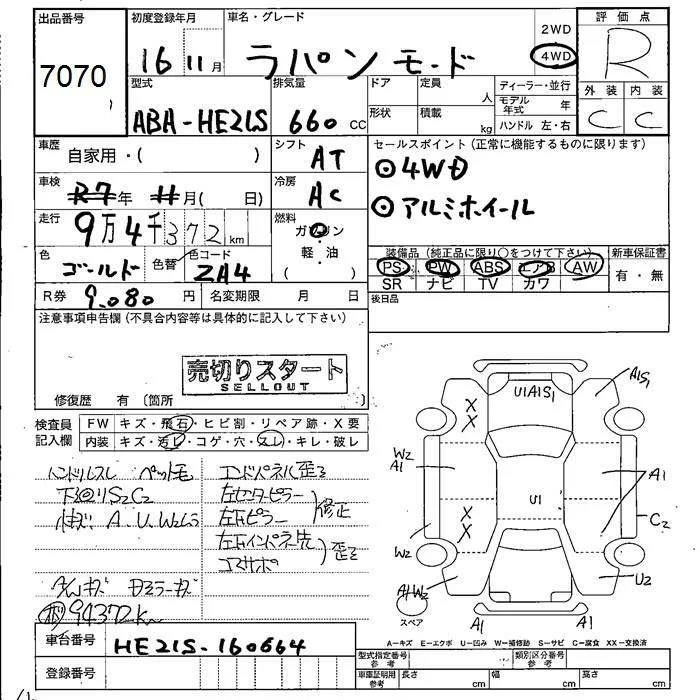 出品番号
7070
初度登録年月
16年11月
車名・グレード
ラパン モード
2WD
4WD
評価点
R
外装 内装
C C
型式
ABA-HE21S
排気量
660 CC
ドア
形状
定員
人
積載
kg
ディーラー・並行
モデル年式 年
ハンドル 左・右
車歴
自家用・( )
シフト
AT
セールスポイント (正常に機能するものに限ります)
⊙4WD
⊙アルミホイール
車検
R7年 11月( 日)
冷房
AC
走行
9万4千372 km
燃料
ガソリン
・
軽・油
( )
色
ゴールド
色替
色コード
ZA4
装備品 (純正品に限り○をつけて下さい)
PS PW ABS エアB AW
SR ナビ TV カワ
新車保証書
有・無
R券
9,080 円
名変期限 月 日
後日品
注意事項申告欄 (不具合内容等は具体的に記入して下さい)
売切りスタート
SELLOUT
修復歴 有 〔箇所 〕
検査員
記入欄
FW キズ・飛石・ヒビ割・リペア跡・X要
内装 キズ・汚レ・コゲ・穴・スレ・キレ・破レ
ハンドルスレ ペット毛
下回りS2C2
A. U. W2
エンドパネル歪ミ
左センターピラー
左Fピラー
修正
左Fインパネ先
コアサポ
歪ミ
94372km
A1S1
U1A1S1
X
X
W2
A1
A1
U1
X
X
C2
W2
U2
A1W2
スペア
A1
A1
A-キズ E-エクボ U-凹み W-補修跡 S-サビ C-腐食 XX-交換済
車台番号
HE21S-160664
登録番号
型式指定番号
参考
類別区分番号
参考
車庫証明用
参考
長さ cm
幅 cm
高さ cm